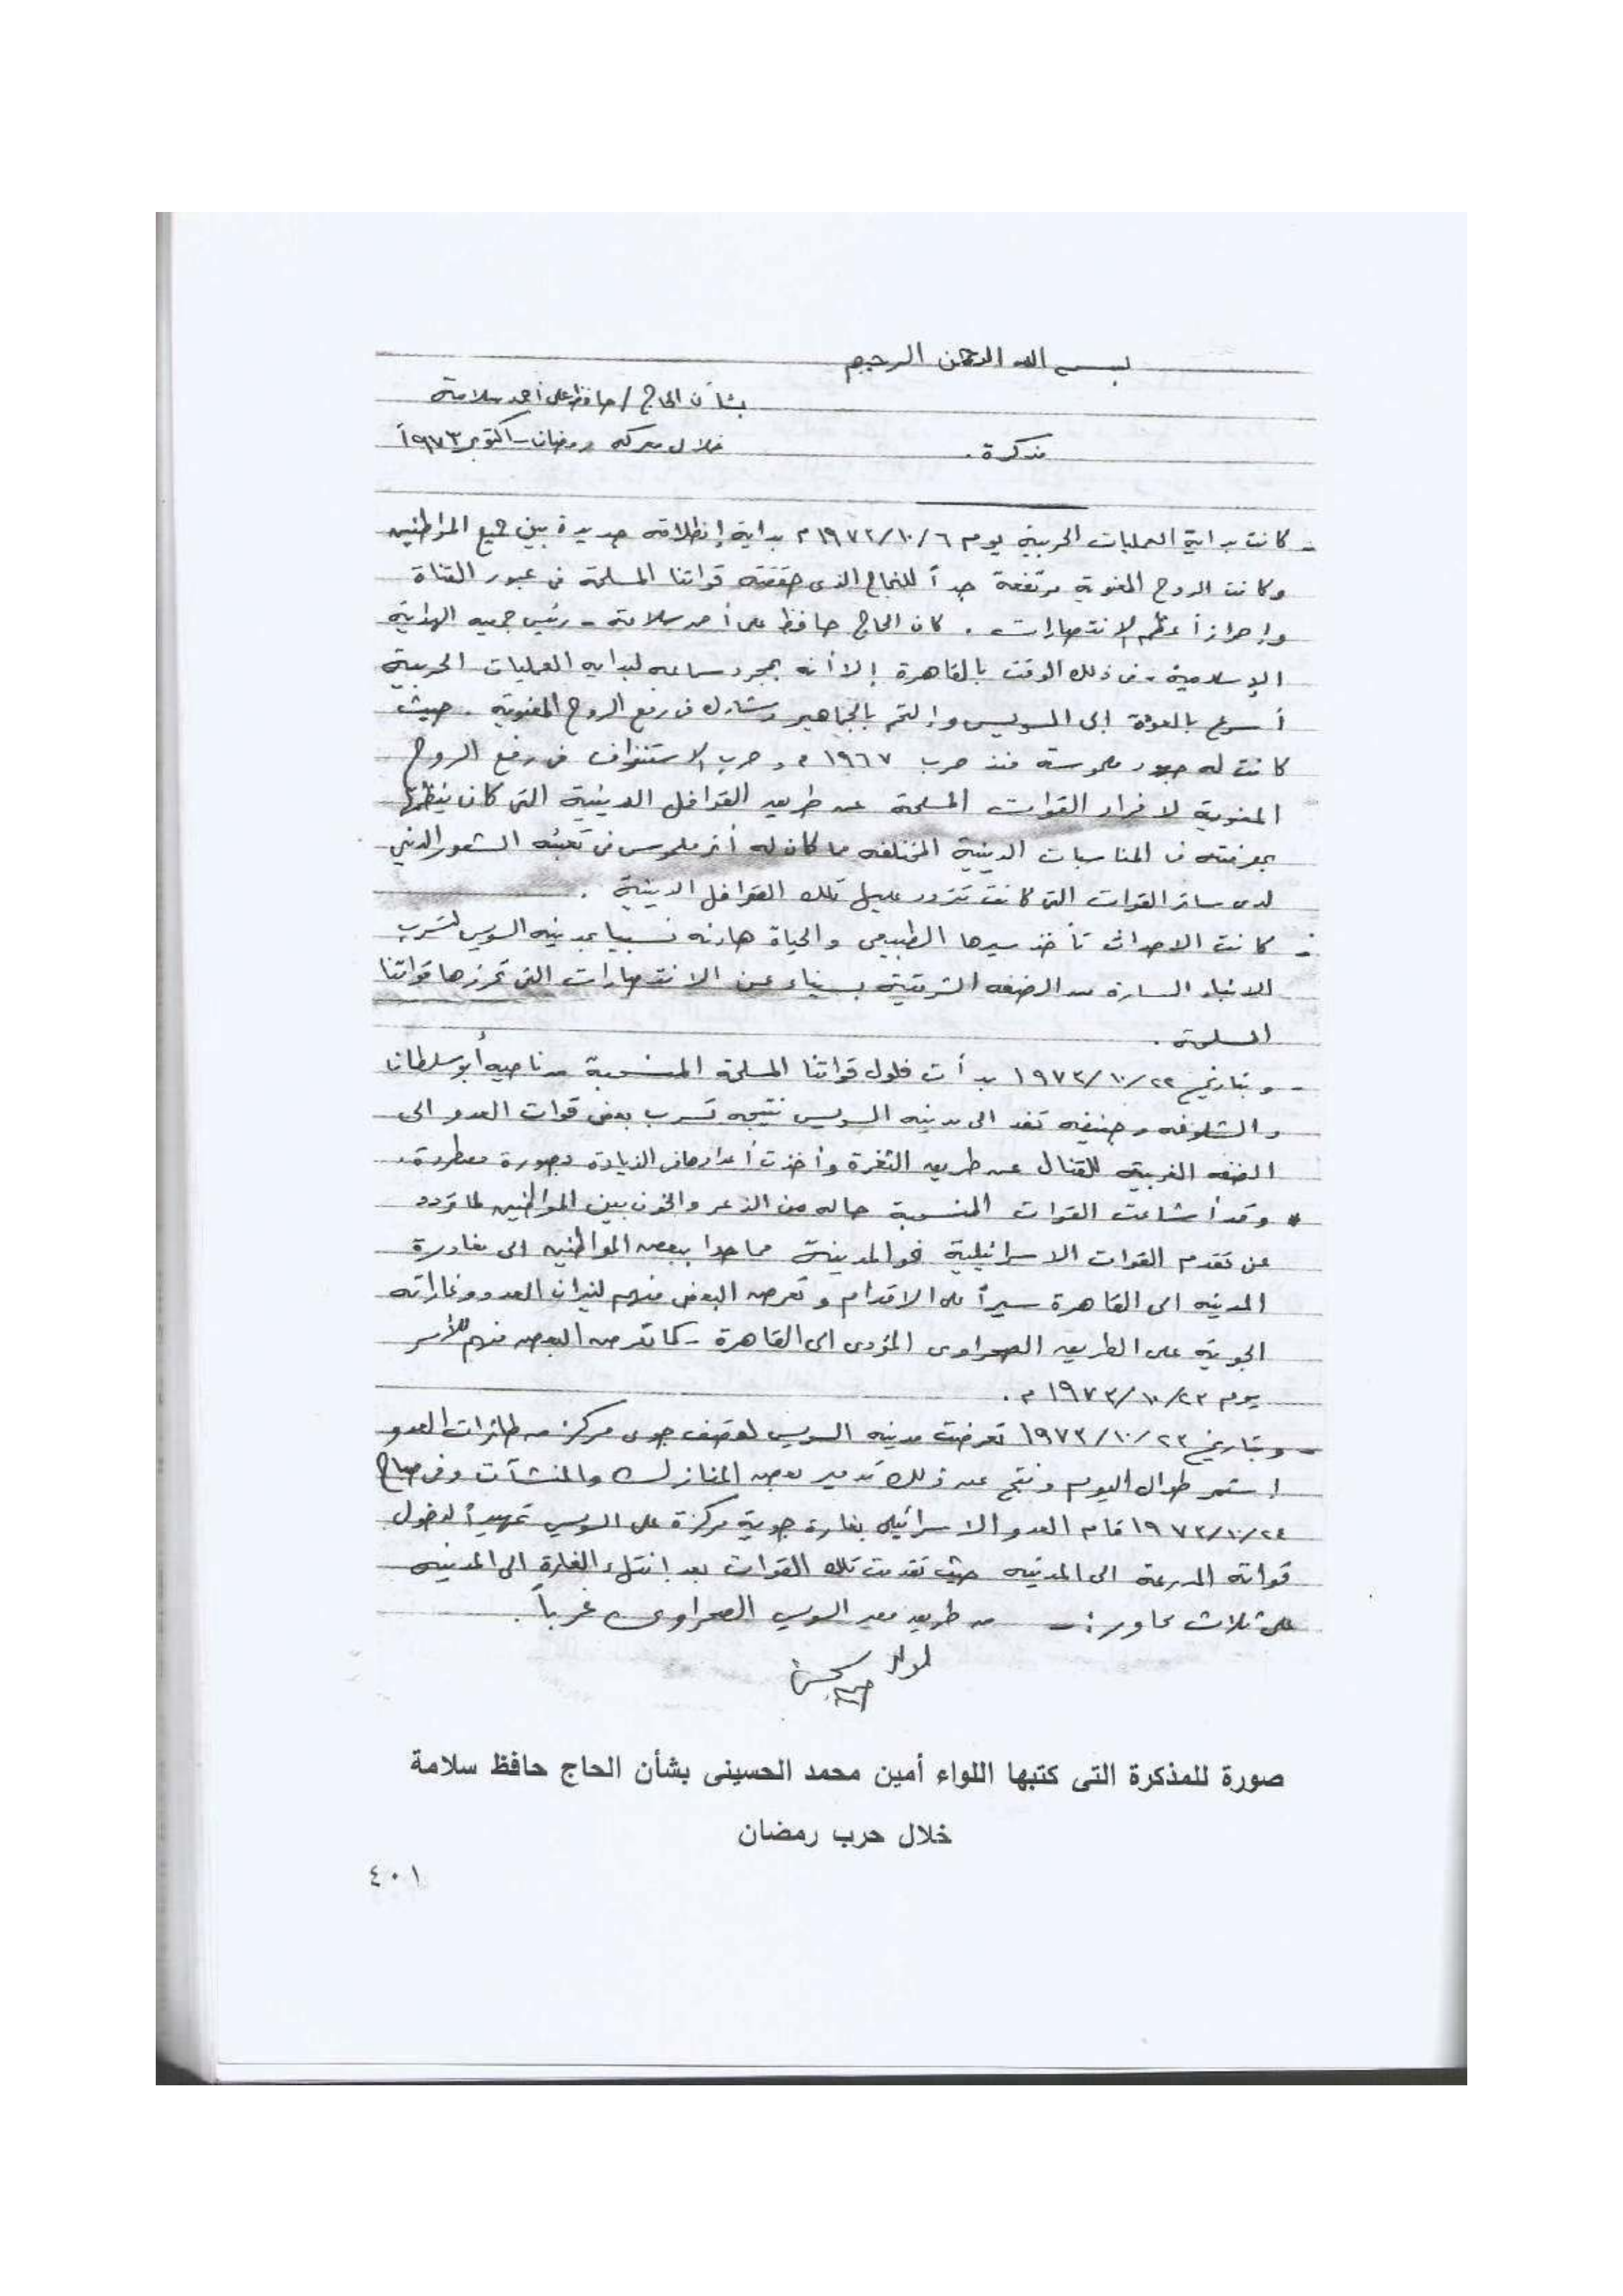 بسم الله الرحمن الرحيم
بشأن الحاج / حافظ على أحمد سلامة
مذكرة .
خلال معركه رمضان - اكتوبر ١٩٧٣
- كانت بداية العمليات الحربية يوم ٦/١٠/١٩٧٣ م بداية إنطلاقه جديدة بين جميع المواطنين
وكانت الروح المعنوية مرتفعة جداً للنجاح الذى حققته قواتنا المسلحة فى عبور القناة
وإحراز أعظم الانتصارات . كان الحاج حافظ على أحمد سلامة - رئيس جمعيه الهداية
الإسلامية - فى ذلك الوقت بالقاهرة إلا أنه بمجرد سماعه لبدايه العمليات الحربية
أسرع بالعودة الى السويس وإلتحم بالجماهير وشارك فى رفع الروح المعنوية . حيث
كانت له جهود ملموسة منذ حرب ١٩٦٧ م و حرب الاستنزاف فى رفع الروح
المعنوية لافراد القوات المسلحة عن طريق القوافل الدينية التى كان ينظمها
بمعرفته فى المناسبات الدينية المختلفه مما كان له أثر ملموس فى تعبئه الشعور الدينى
لدى سائر القوات التى كانت تتردد عليها تلك القوافل الدينية .
- كانت الاحداث تأخذ سيرها الطبيعى والحياة هادئه نسبيا بمدينه السويس لتسرب
الانباء السارة من الضفه الشرقية بسيناء عن الانتصارات التى تحرزها قواتنا
المسلحة .
- وبتاريخ ٢٢/١٠/١٩٧٣ بدأت فلول قواتنا المسلحة المنسحبة من ناحيه أبو سلطان
والشلوفه وجنيفه تفد الى مدينه السويس نتيجه تسرب بعض قوات العدو الى
الضفه الغربية للقنال عن طريق الثغرة وأخذت أعدادها فى الزيادة بصورة مطردة .
* وقد أشاعت القوات المنسحبة حاله من الذعر والخوف بين المواطنين لما تردد
عن تقدم القوات الاسرائيلية نحو المدينة مما حدا ببعض المواطنين الى مغادرة
المدينه الى القاهرة سيراً على الاقدام وتعرض البعض منهم لنيران العدو وغاراته
الجوية على الطريق الصحراوى المؤدى الى القاهرة - كما تعرض البعض منهم للأسر
يوم ٢٣/١٠/١٩٧٣ م .
- وبتاريخ ٢٣/١٠/١٩٧٣ تعرضت مدينه السويس لقصف جوى مركز من طائرات العدو
استمر طوال اليوم ونتج عن ذلك تدمير بعض المنازل والمنشآت وفى صباح
٢٤/١٠/١٩٧٣ قام العدو الاسرائيلى بغارة جوية مركزة على السويس تمهيداً لدخول
قواته المدرعة الى المدينه حيث تقدمت تلك القوات بعد إنتهاء الغارة الى المدينه
على ثلاث محاور : - من طريق مصر السويس الصحراوى غرباً .
لواء
صورة للمذكرة التى كتبها اللواء أمين محمد الحسينى بشأن الحاج حافظ سلامة
خلال حرب رمضان
٤٠١